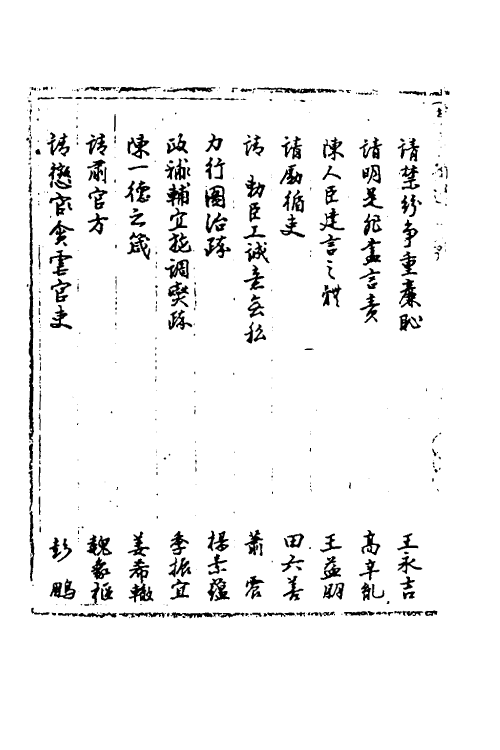 請禁紛爭重廉恥 王永吉
請明是非盡言責 高辛胤
陳人臣建言之體 王益朋
請勵循吏 田六善
請勅臣工誠意無私 蕭震
力行圖治疏 楊素蘊
政權輔宜調疏 季振宜
陳一德之箴 姜希轍
請肅官方 魏象樞
請懲官貪害官吏 彭鵬